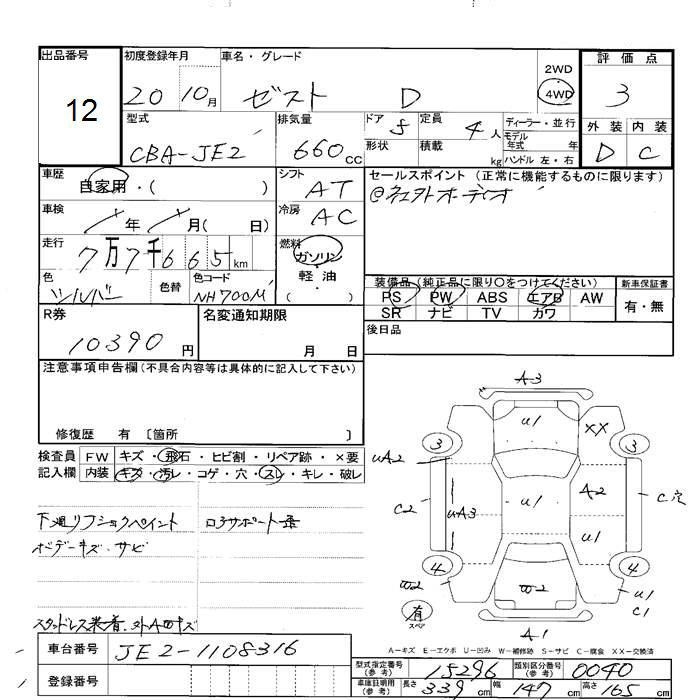 出品番号 12
初度登録年月 20 10月
車名・グレード ゼスト D
2WD
4WD
評価点 3
外装 内装
D C
型式 CBA-JE2
排気量 660cc
ドア 5
形状
定員 4人
積載 kg
ディーラー・並行
モデル年式 年
ハンドル 左・右
車歴 自家用・( )
車検 年 月( 日)
走行 7万7千665km
シフト AT
冷房 AC
燃料 ガソリン・軽油
( )
セールスポイント (正常に機能するものに限ります)
@社外オーディオ
色 シルバー
色替
色コード NH700M
装備品(純正品に限り○をつけてください)
PS PW ABS エアB AW
SR ナビ TV カワ
新車保証書
有・無
R券 10390円
名変通知期限
月 日
後日品
注意事項申告欄(不具合内容等は具体的に記入して下さい)
修復歴 有 〔箇所 〕
検査員記入欄
FW キズ・飛石・ヒビ割・リペア跡・×要
内装 キズ・汚レ・コゲ・穴・スレ・キレ・破レ
下廻リフショクペイント
ボデーキズ・サビ
スタッドレス装着・外Aワキズ
A3
U1 XX
3 3
UA2
C2 UA3 U1 A2 C穴
U1
4 4
W2 W2 U1
C1
有
スペア
A1
A-キズ E-エクボ U-凹み W-補修跡 S-サビ C-腐食 XX-交換済
車台番号 JE2-1108316
登録番号
型式指定番号(参考) 15296
類別区分番号(参考) 0040
車庫証明用(参考) 長さ 339cm 幅 147cm 高さ 165cm